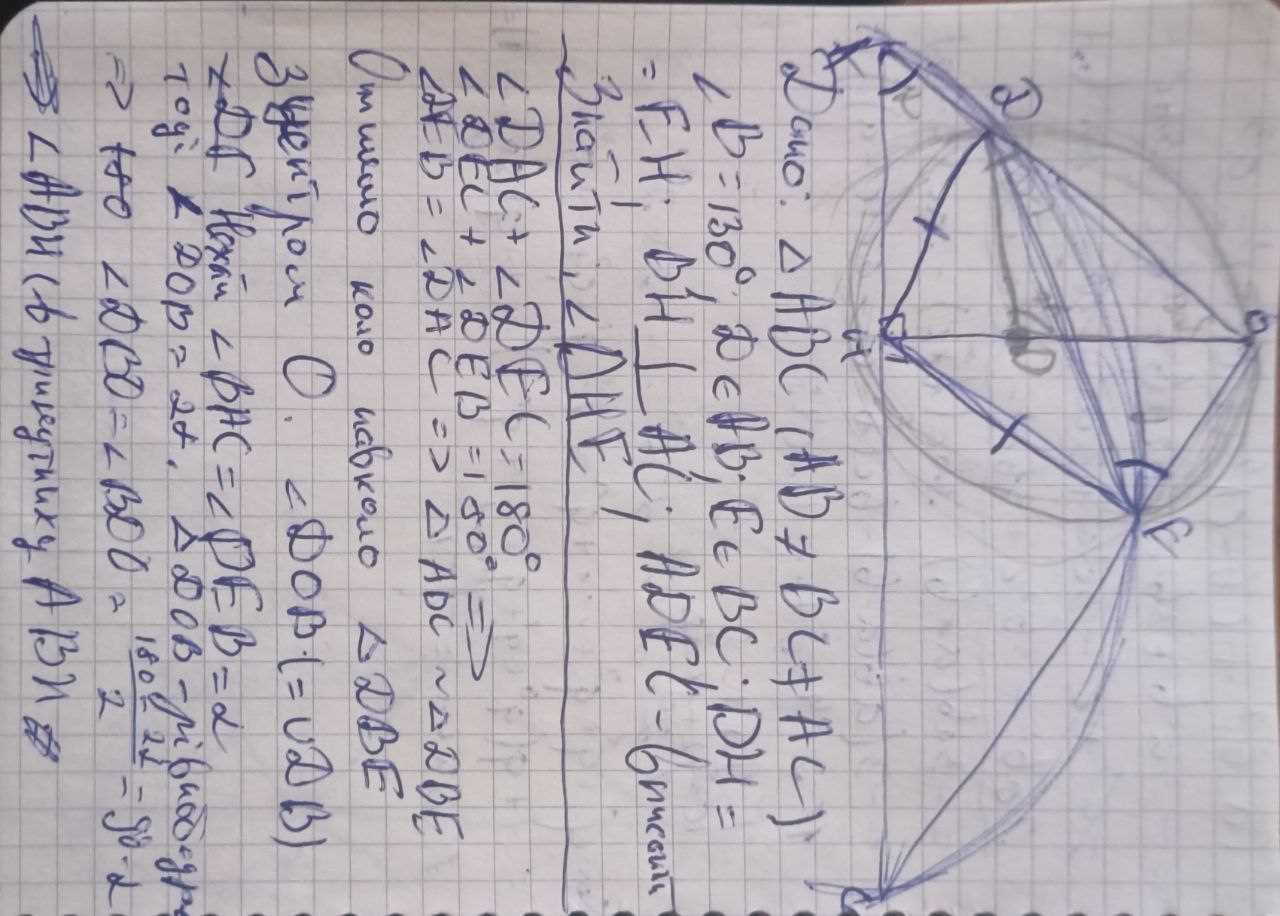 A
D
B
E
C
H
O
Дано: △ ABC (AB ≠ BC ≠ AC)
∠B = 130°, D ∈ AB; E ∈ BC; DH =
= EH; BH ⊥ AC; ADEC - вписаний
Знайти: ∠DHE
∠DAC + ∠DEC = 180°
∠DEC + ∠DEB = 180° ⇒
∠DEB = ∠DAC ⇒ △ ABC ~ △ DBE
Опишемо коло навколо △ DBE
З центром O. ∠DOB (= ∪DB)
Нехай ∠BAC = ∠DEB = α
тоді ∠DOB = 2α, △DOB -
⇒ ∠DBO = ∠BDO = (180 - 2α)/2 = 90 - α
∠ABH (в трикутнику ABH